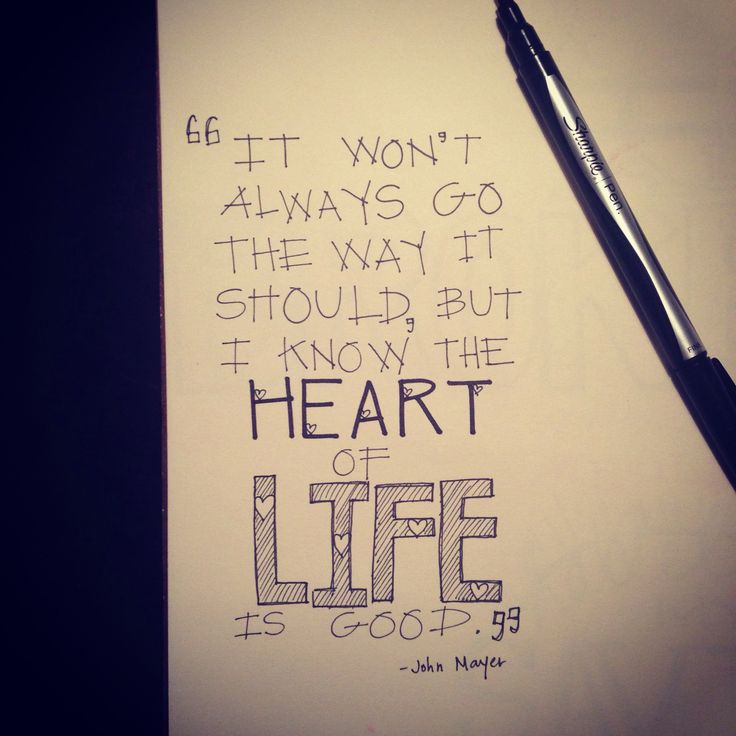 “IT WON'T
ALWAYS GO
THE WAY IT
SHOULD, BUT
I KNOW THE
HEART
OF
LIFE
IS GOOD.”
-John Mayer
Sharpie | Pen.
FINE